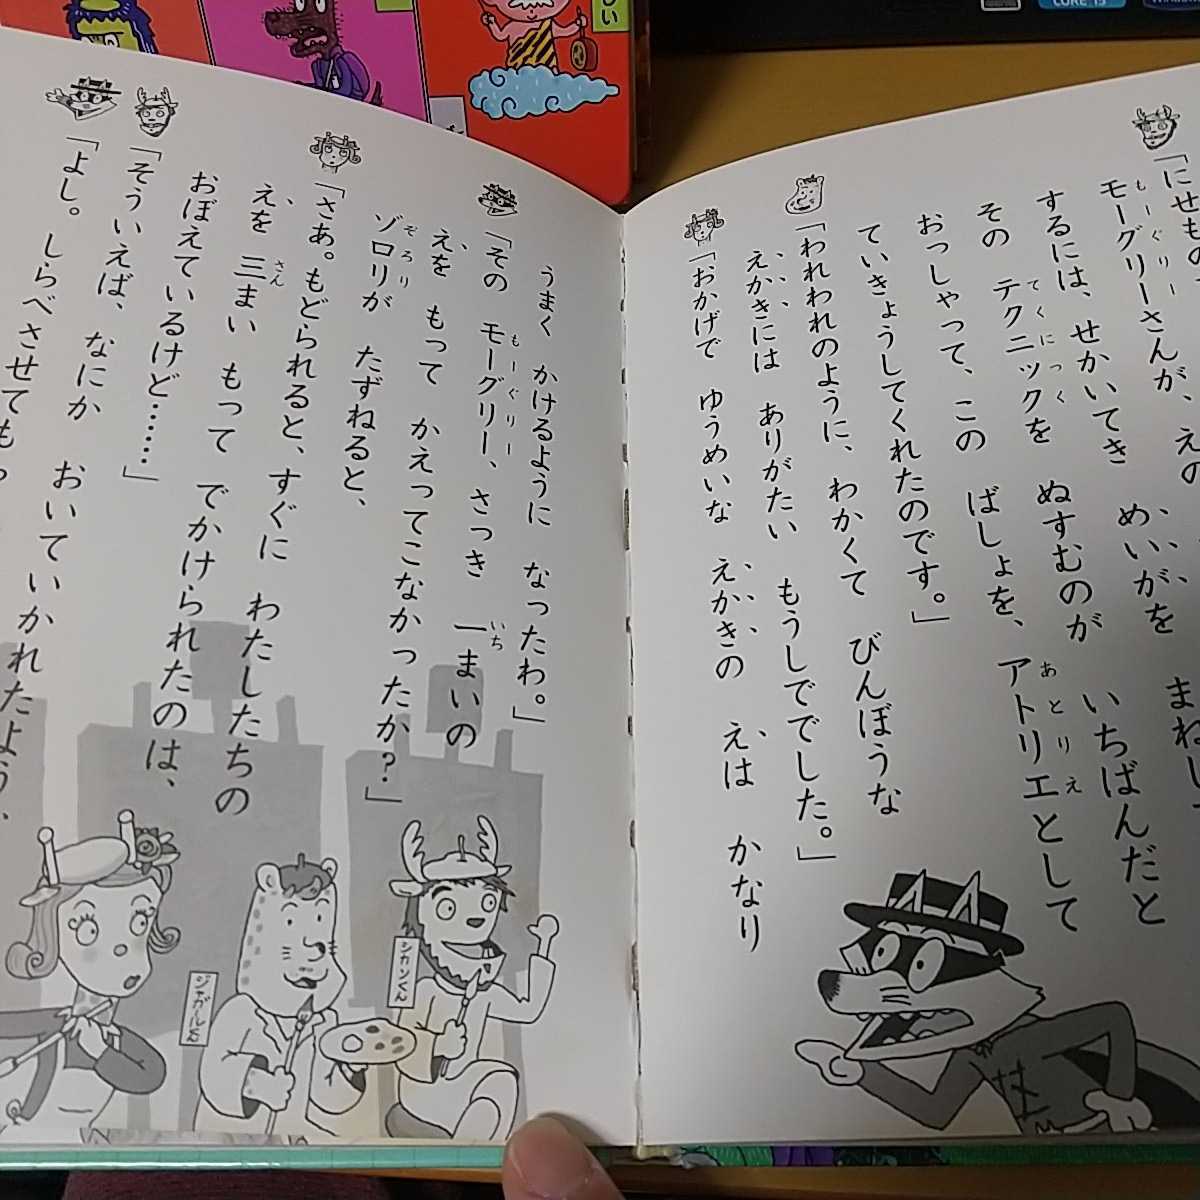 「にせもの
モーグリーさんが、えの
もーぐりー
するには、せかいてき めいがを まねし
その テクニックを ぬすむのが いちばんだと
てくにっく
おっしゃって、この ばしょを、アトリエとして
あとりえ
ていきょうしてくれたのです。」
「われわれのように、わかくて びんぼうな
えかきには ありがたい もうしででした。」
「おかげで ゆうめいな えかきの えは かなり
うまく かけるように なったわ。」
「その モーグリー、さっき 一まいの
もーぐりー
いち
えを もって かえってこなかったか?」
ゾロリが たずねると、
ぞろり
「さあ。もどられると、すぐに わたしたちの
えを 三まい もって でかけられたのは、
さん
おぼえているけど……」
「そういえば、なにか おいていかれたよう、
「よし。しらべさせても
シカンくん
ジャガールくん
しい
CORE i5